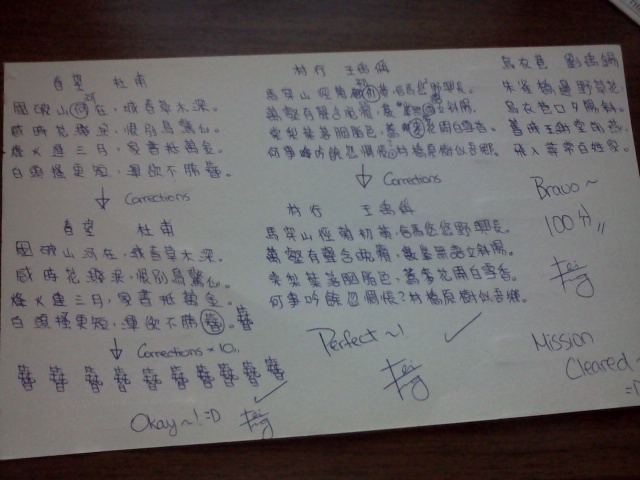 春望 杜甫
國破山河在，城春草木深。
感時花濺淚，恨別鳥驚心。
烽火連三月，家書抵萬金。
白頭搔更短，渾欲不勝簪。
Corrections
春望 杜甫
國破山河在，城春草木深。
感時花濺淚，恨別鳥驚心。
烽火連三月，家書抵萬金。
白頭搔更短，渾欲不勝簪。簪
Corrections × 10
簪 簪 簪 簪 簪 簪 簪 簪 簪 簪
Okay~! =D
村行 王禹偁
馬穿山徑菊初黃，信馬悠悠野興長。
萬壑有聲含晚籟，數峯無語立斜陽。
棠梨葉落胭脂色，蕎麥花開白雪香。
何事吟餘忽惆悵，村橋原樹似吾鄉。
Corrections
村行 王禹偁
馬穿山徑菊初黃，信馬悠悠野興長。
萬壑有聲含晚籟，數峯無語立斜陽。
棠梨葉落胭脂色，蕎麥花開白雪香。
何事吟餘忽惆悵？村橋原樹似吾鄉。
Perfect~!
烏衣巷 劉禹錫
朱雀橋邊野草花，
烏衣巷口夕陽斜。
舊時王謝堂前燕，
飛入尋常百姓家。
Bravo~
100分
Mission
Cleared~
=D